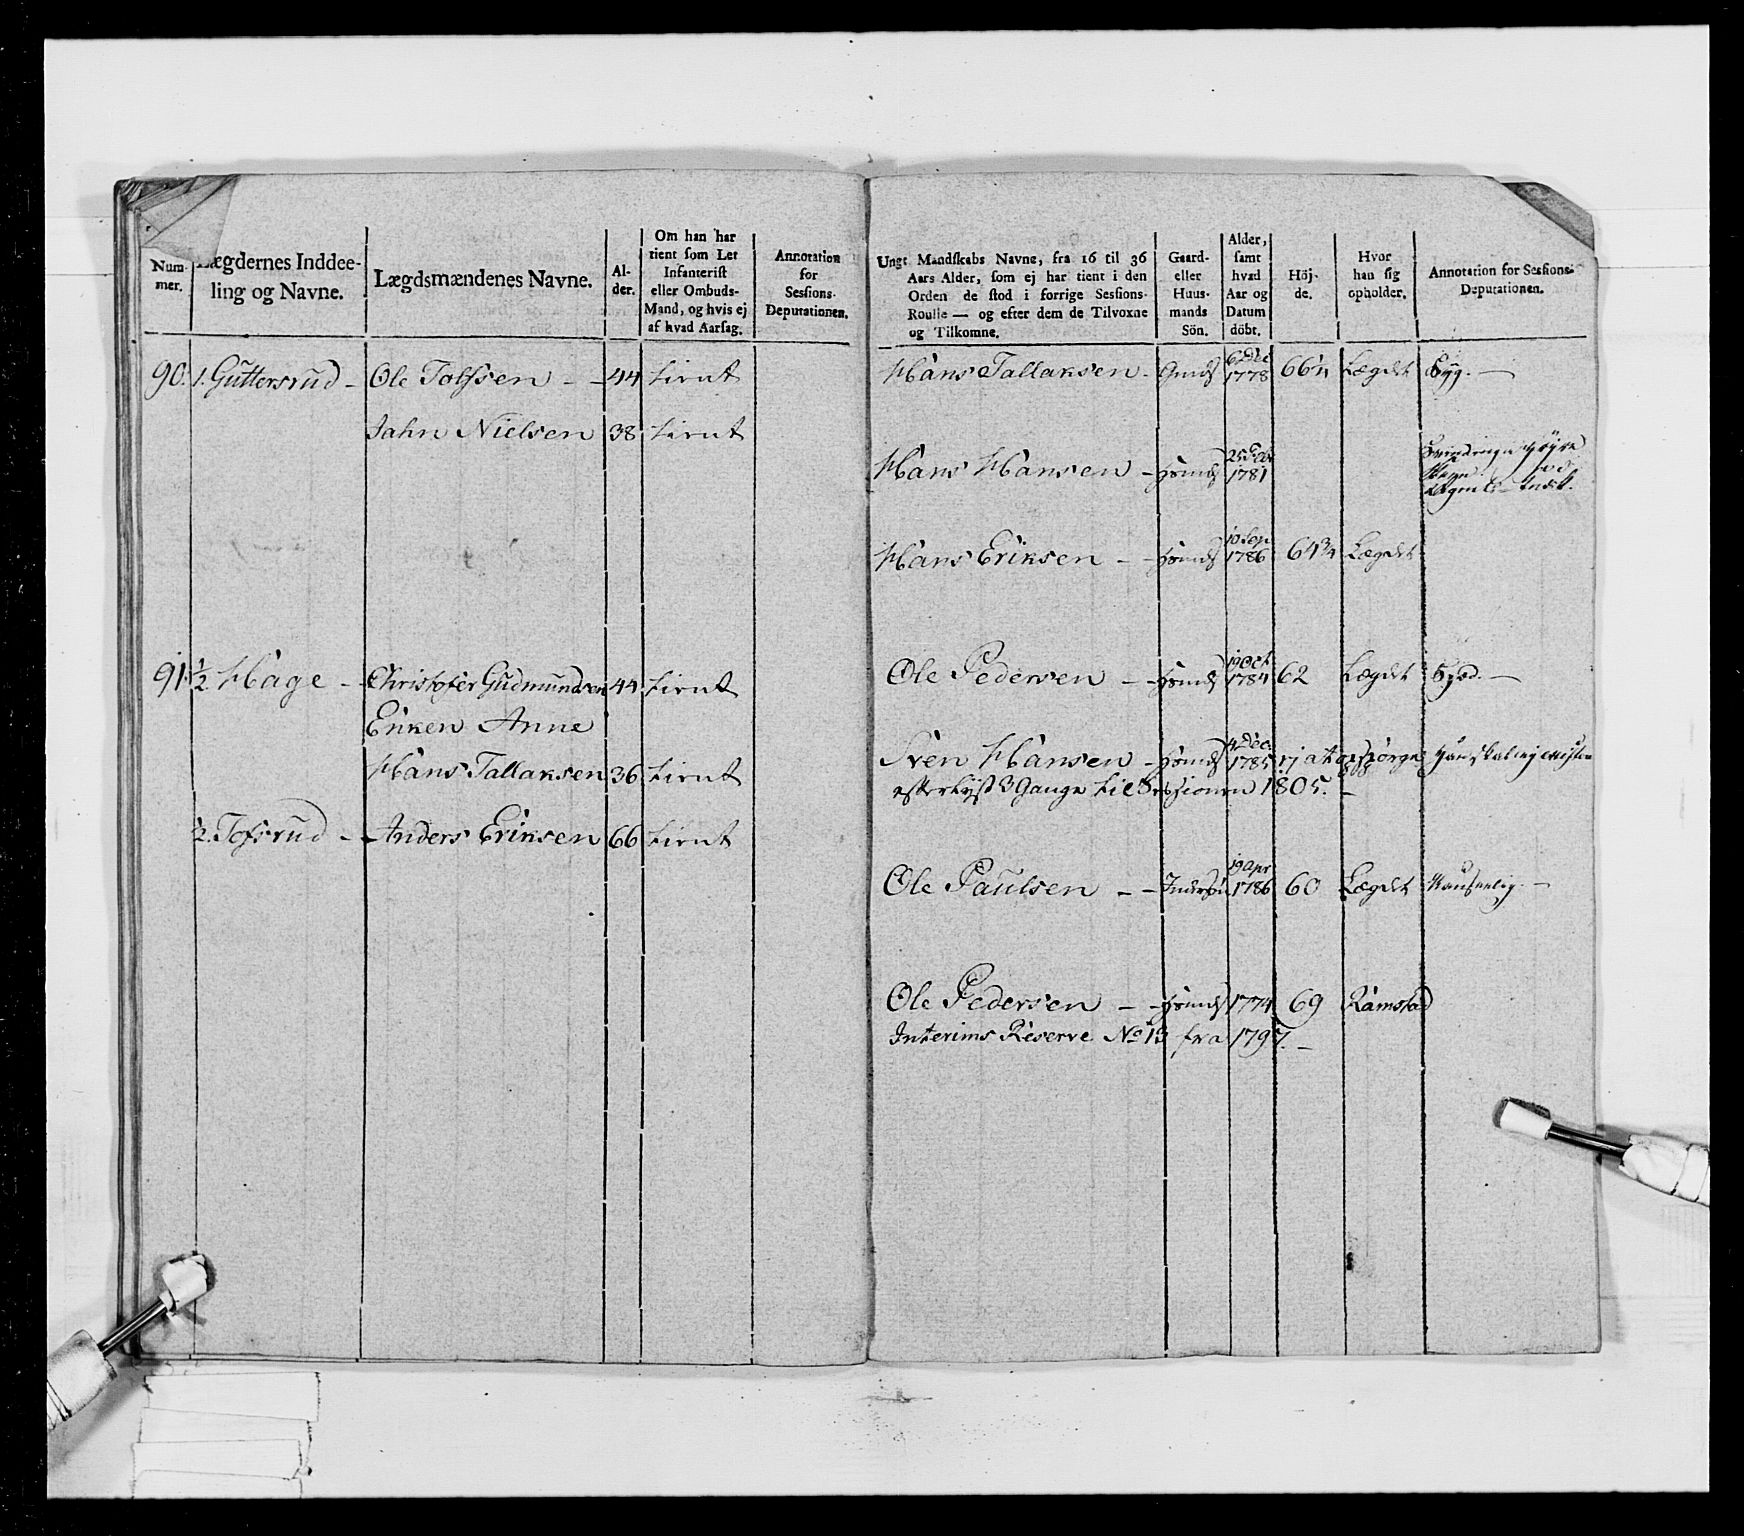 Num-
mer.
Lægdernes Inddee-
ling og Navne.
Lægdsmændenes Navne.
Al-
der.
Om han har
tient som Let
Infanterist
eller Ombuds-
Mand, og hvis ej
af hvad Aarsag.
Annotation
for
Sessions-
Deputationen.
90. 1. Guttersrud - Ole Tolfsen - - 44 tient
Jahn Nielsen 38 tient
91. 1/2 Hage - Christofer Gudmundsen 44 tient
Enken Anne
Hans Tallaksen 36 tient
1/2. Tofsrud - Anders Eriksen 66 tient
Ungt Mandskabs Navne, fra 16 til 36
Aars Alder, som ej har tient i den
Orden de stod i forrige Sessions-
Roulle — og efter dem de Tilvoxne
og Tilkomne.
Gaard-
eller
Huus-
mands
Sön.
Alder,
samt
hvad
Aar og
Datum
döbt.
Höj-
de.
Hvor
han sig
opholder.
Annotation for Sessions-
Deputationen.
Hans Tallaksen - Gmds 6 Dec 1778 66 1/2 Lægdet Syg. —
Hans Hansen - Hsmds 1781
Hans Eriksen - - Hsmds 10 Sep 1786 64 3/4 Lægdet
Ole Pedersen - Hsmds 19 Oct 1784 62 Lægdet
Sven Hansen - Hsmds 4 Dec. 1785 ej at opspörge
efterlyst 3 Gange til Sessionen 1805. -
Ole Paulsen - - 19 Apr 1786 60 Lægdet
Ole Pedersen - - Hsmds 1774 69 Ramstad
Interims Reserve No 13 fra 1797. -